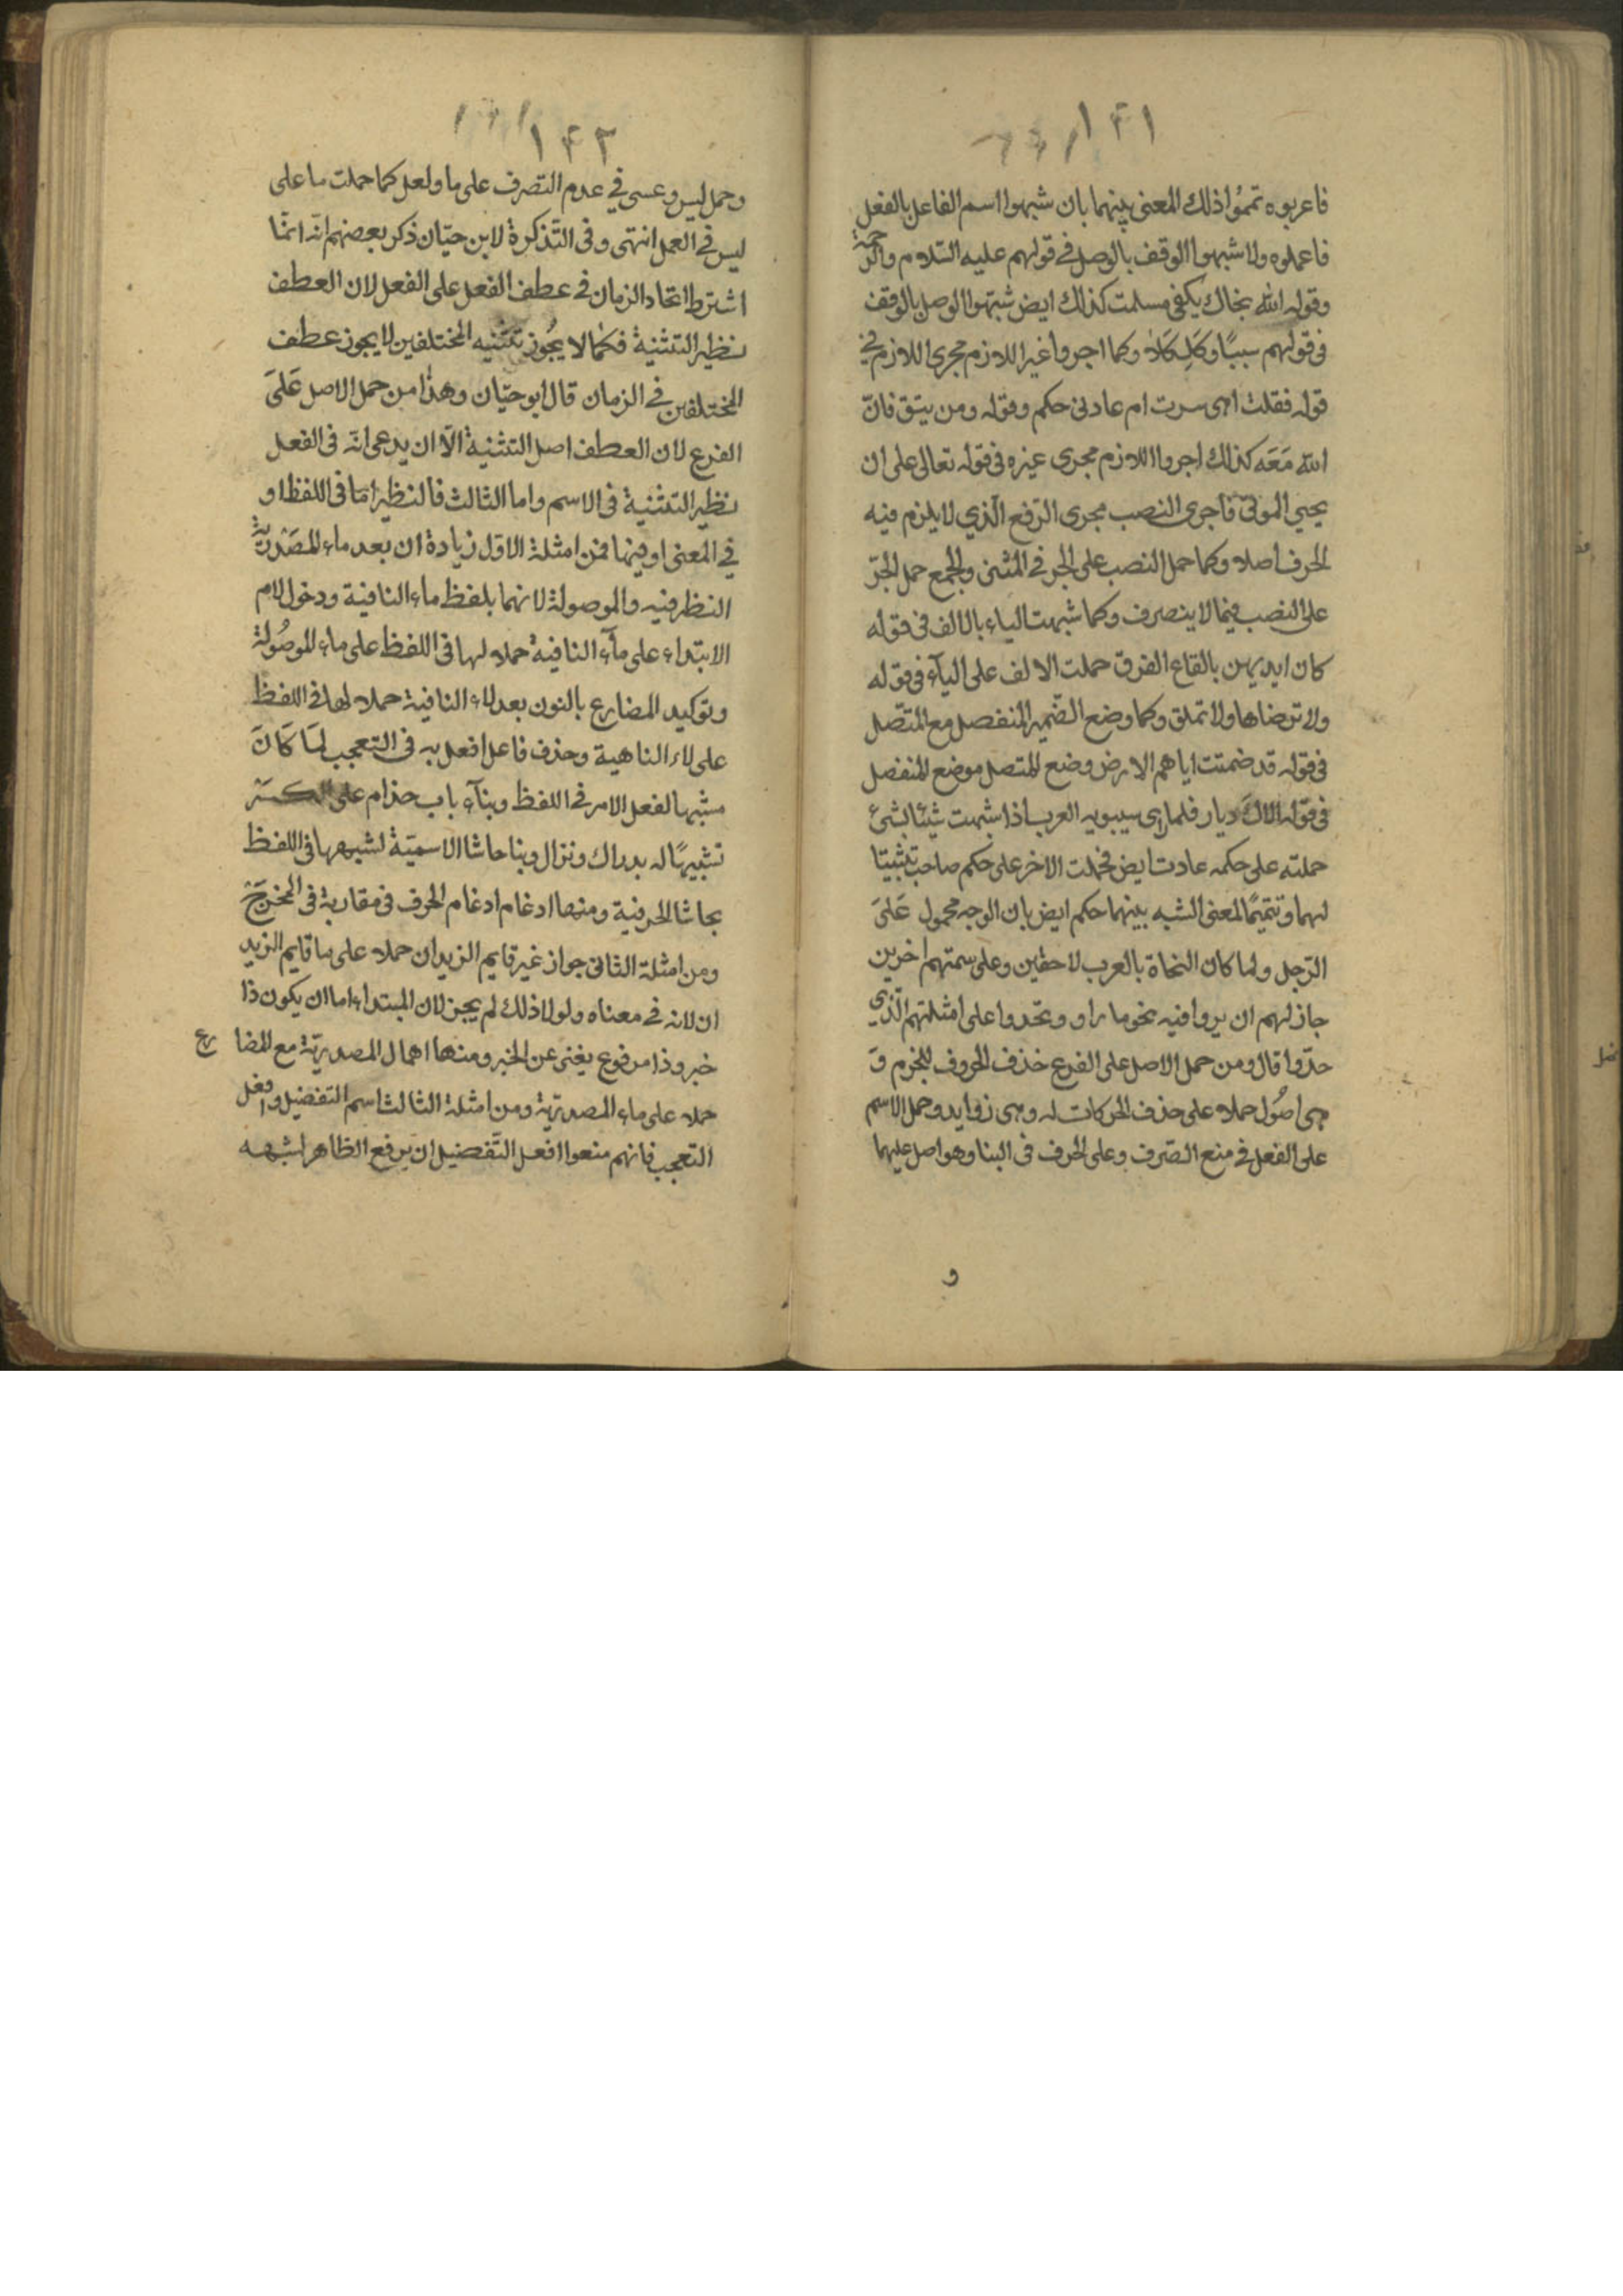 ١٤١
فاعربوه تمموا ذلك المعنى بينهما بان شبهوا اسم الفاعل بالفعل
فاعملوه ولا شبهوا الوقف بالوصل في قولهم عليه السّلام والرحمة
وقوله الله نجاك بكفي مسلمت كذلك ايض شبّهوا الوصل بالوقف
في قولهم سببّا وكلكلا وكما اجروا غير اللازم مجرى اللازم في
قوله فقلت اهى سرت ام عادنى حكم وقوله ومن يتق فانّ
الله مَعَه كذلك اجروا اللازم مجرى غيره في قوله تعالى على ان
يحيي الموتى فاجرى النصب مجرى الرّفع الّذي لا يلزم فيه
الحرف اصلا وكما حمل النصب على الجر في المثنى والجمع حمل الجرّ
على النصب فيما لا ينصرف وكما شبهت الياء بالالف في قوله
كان ايديهن بالقاع الفرق حملت الالف على اليآء في قوله
ولا ترضاها ولا تملق وكما وضع الضّمير المنفصل مع المتّصل
في قوله قد ضمنت اياهم الارض وضع المتصل موضع المنفصل
في قوله الاك ديار فلما راى سيبويه العرب اذا شبهت شيئا بشئ
حملته على حكمه عادت ايض فحملت الاخر على حكم صاحبه تثبيتا
لهما وتتميمًا لمعنى الشبه بينهما حكم ايض بان الوجه محمول عَلىَ
الرّجل ولما كان النحاة بالعرب لاحقين وعلى سمتهم اخرين
جاز لهم ان يروا فيه نحو ما راو ويحدوا على امثلتهم الّذي
حدّوا قال ومن حمل الاصل على الفرع حذف الحروف للجزم وَ
هى اصُول حملا على حذف الحركات له وهى زوايد وحمل الاسم
على الفعل في منع الصّرف وعلى الحرف في البنا وهو اصل عليهما
و
١٤٢
وحمل ليس وعسى في عدم التصرف على ما ولعل كما حملت ما على
ليس في العمل انتهى وفى التّذكرة لابن حيّان ذكر بعضهم انّه انمّا
اشترط اتحاد الزمان في عطف الفعل على الفعل لان العطف
نظير التثنية فكما لا يجُوز تثنيه المختلفين لا يجوز عطف
المختلفين في الزمان قال ابو حيّان وهذا من حمل الاصل عَلىَ
الفرع لان العطف اصل التثنية الّا ان يدعى انّه فى الفعل
نظير التثنية فى الاسم واما الثالث فالنظير امّا فى اللفظ او
في المعنى او فيهما فمن امثلة الاوّل زيادة ان بعد ماء المصَدْريّة
النظرفيه والموصولة لانهما بلفظ ماء النافية ودخول لام
الابتداء على مآء النافية حملا لها فى اللفظ على ماء الموصُولة
وتوكيد المضارع بالنون بعد لاء النافية حملا لها فى اللفظ
على لاء الناهية وحذف فاعل افعل به فى التعجب لمَا كَانَ
مشبها لفعل الامر فى اللفظ وبنآء باب حذام على الكسْر
تشبيهًا له بدراك ونزال وبنا حاشا الاسميّة لشبهها فى اللفظ
بحاشا الحرفية ومنها ادغام ادغام الحرف فى مقاربة فى المخرَج
ومن امثلة الثانى جواز غير قايم الزيدان حملا على ما قايم الزيد
ان لانه في معناه ولولا ذلك لم يجز لان المبتداء اما ان يكون ذا
خبر وذا مرفوع يغنى عن الخبر ومنها اهمال المصدريّة مع المضا رع
حملا على ماء المصدريّة ومن امثلة الثالث اسم التفضيل وافعل
التعجب فانهم منعوا افعل التّفضيل ان يرفع الظاهر لشبهه